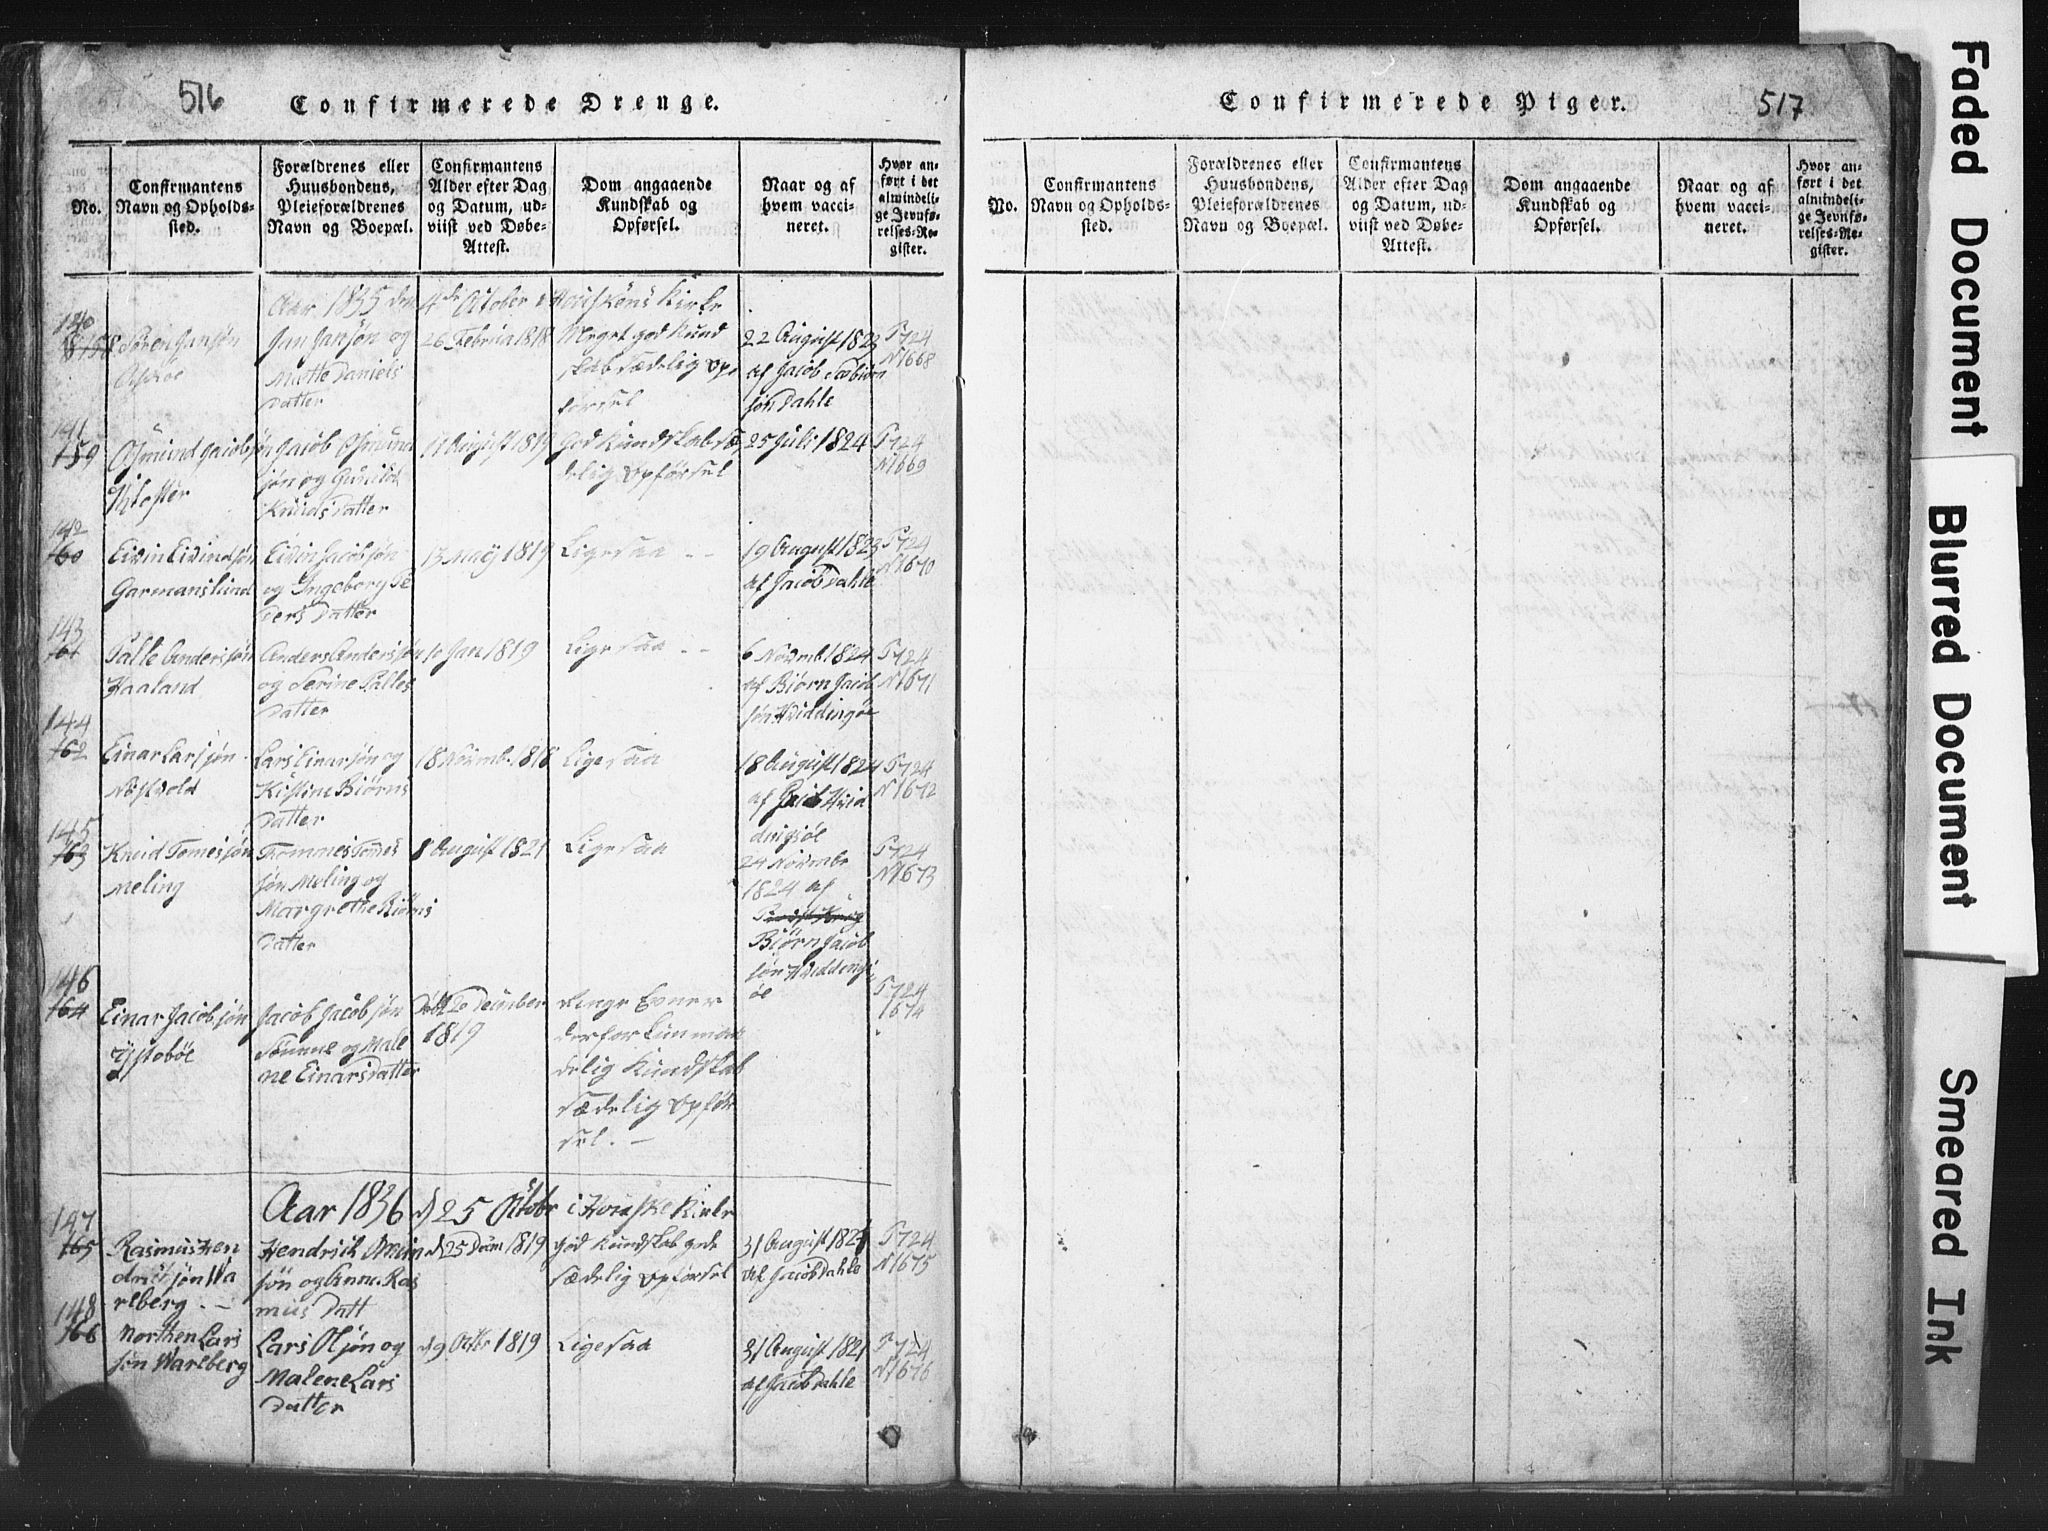 516
Confirmerede Drenge.
No.
Confirmantens
Navn og Opholds-
sted.
Forældrenes eller
Huusbondens,
Pleieforældrenes
Navn og Boepæl.
Confirmantens
Alder efter Dag
og Datum, ud-
viist ved Døbe-
Attest.
Dom angaaende
Kundskab og
Opførsel.
Naar og af
hvem vacci-
neret.
Hvor an-
ført i det
almindeli-
ge Jevnfø-
relses-Re-
gister.
Aar 1835 den 4de October i Kirke
140
158
Søren Jansøn
Jan Jansøn og
Mætte Daniels
Datter
26 Februar 1818
Meget god Kund
skab sædelig Op
førsel
22 August 1823
af Jacob Sæbiørn
søn Dahle
P 724
N 1668
141
159
Osmund Jacobsøn
Kloster
Jacob Osmund
søn og Gunild
Knuds Datter
11 August 1819
God Kundskab sæ
delig Opførsel
25 Juli 1824
P 724
N 1669
142
160
Eivin Eivindsøn
Garmanslund
Eivin Jacobsøn
og Ingeborg Pe
ders Datter
13 Maij 1819
Ligesaa - -
19 August 1823
af Jacob Dahle
P 724
N 1670
143
161
Palle Andersøn
Haaland
Anders Andersøn
og Serine Palles
Datter
10 Jan 1819
Ligesaa - -
6 Novmb 1824
af Biørn Jacob
søn Hviddingøe
P 724
N 1671
144
162
Einar Larsøn
Nistvold
Lars Einarsøn og
Kistine Biørns
Datter
18 Novmb. 1818
Ligesaa
18 August 1824
af Jacob Hvid
dingsøe
P 724
N 1672
145
163
Knud Tomesøn
Meling
Thommes Tomes
søn Meling og
Margrethe Biørns
Datter
8 August 1821
Ligesaa
24 Novmbr
1824 af
Biørn Jacob
søn Hviddings
øe
P 724
N 1673
146
164
Einar Jacobsøn
Ystebøe
Jacob Jacobsøn
Sømme og Male
ne Einars Datter
December
1819
Ringe Evner
derfor kun maa
delig Kundskab
sædelig Opfør
sel. -
P 724
1674
Aar 1836 d 25 Octobr i Kirke
147
165
Rasmus Hen
dricsøn Va
rlberg. -
Hendrich
søn og Anne Ras
mus Datt
d 25 Decm 1819
God Kundskab gode
sædelig Opførsel
31 August 1821
af Jacob Dahle
P 724
N 1675
148
166
Morthen Lars
søn Warlberg
Lars Olsøn og
Malene Lars
Datter
d 9 Octbr 1819
Ligesaa
31 August 1821
af Jacob Dahle
P 724
N 1676
Confirmerede Piger.
517
No.
Confirmantens
Navn og Opholds-
sted.
Forældrenes eller
Huusbondens,
Pleieforældrenes
Navn og Boepæl.
Confirmantens
Alder efter Dag
og Datum, ud-
viist ved Døbe-
Attest.
Dom angaaende
Kundskab og
Opførsel.
Naar og af
hvem vacci-
neret.
Hvor an-
ført i det
almindeli-
ge Jevnfø-
relses-Re-
gister.
Faded Document
Blurred Document
Smeared Ink